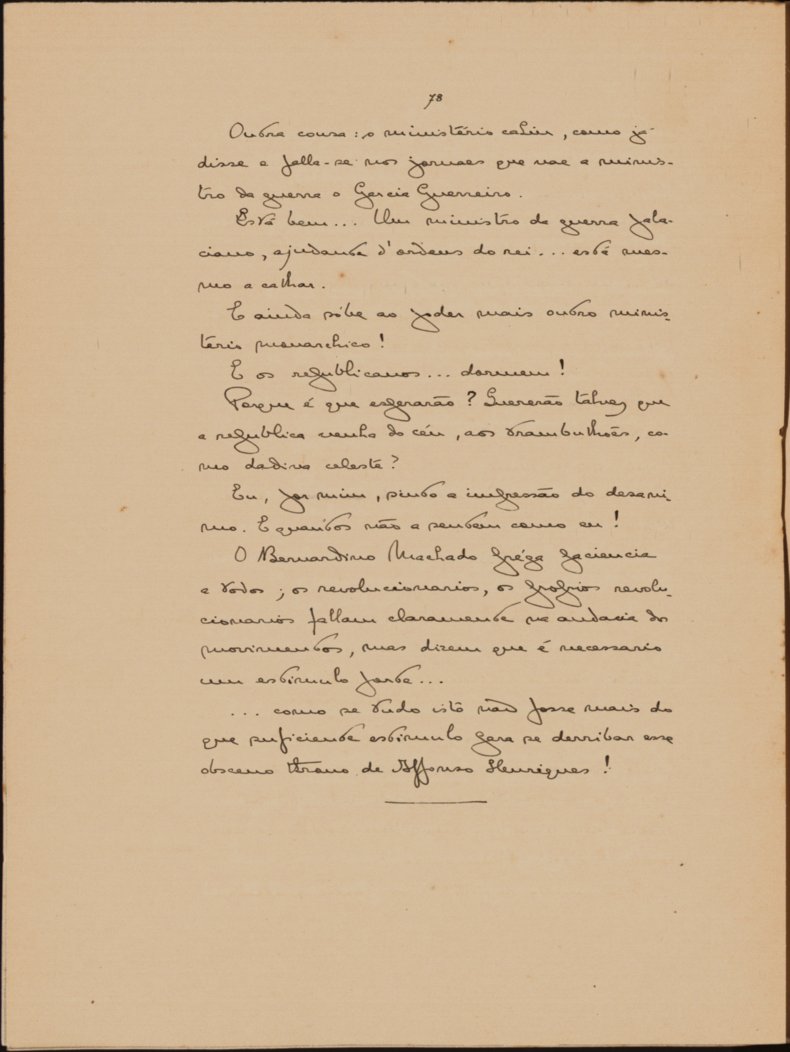 78
Outra cousa: o ministério cahiu, como já
disse e falla-se nos jornaes que vae a minis-
tro da guerra o Garcia Guerreiro.
Está bem... Um ministro da guerra pala-
ciano, ajudante d'ordens do rei... está mes-
mo a calhar.
E ainda sóbe ao poder mais outro minis-
tério monarchico!
E os republicanos... dormem!
Porque é que esperarão? Quererão talvez que
a republica venha do céu, aos trambulhões, co-
mo dadiva celeste?
Eu, por mim, sinto a impressão do desani-
mo. E quantos não a sentem como eu!
O Bernardino Machado préga paciencia
a todos; os revolucionarios, os proprios revolu-
cionarios fallam claramente na audacia dos
movimentos, mas dizem que é necessario
um estimulo forte...
... como se tudo isto não fosse mais do
que suficiente estimulo para se derribar esse
obsceno throno de Affonso Henriques!